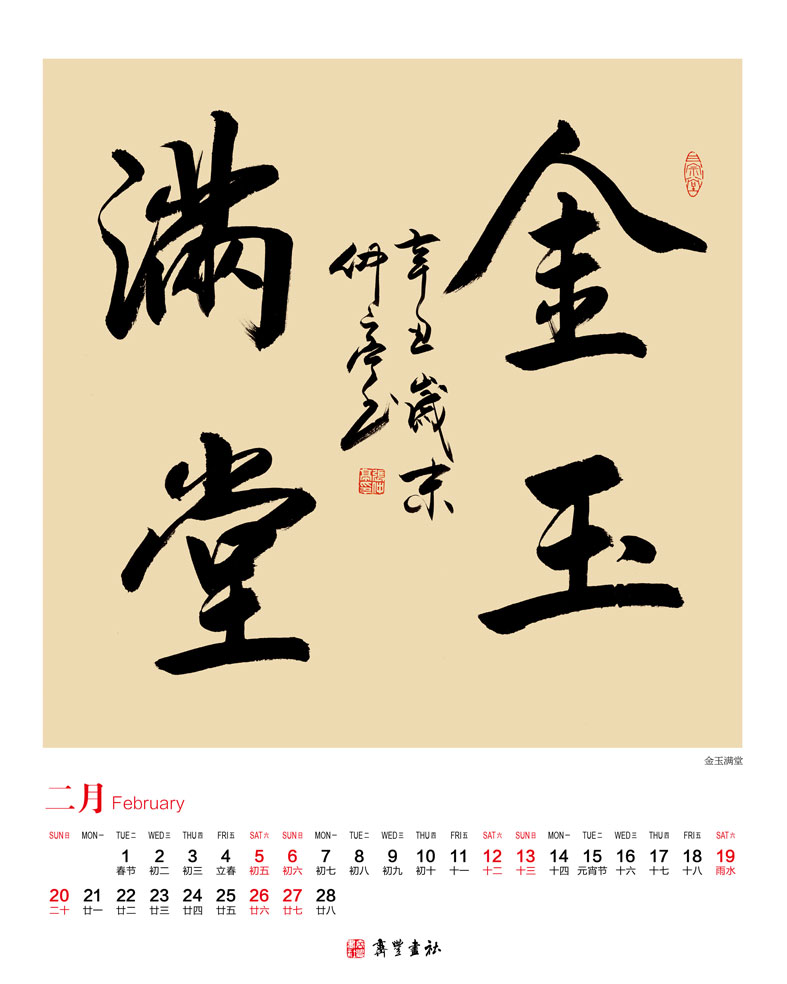 金玉
满堂
辛丑歲末
仲亭书
金玉满堂
二月 February
SUN日 MON一 TUE二 WED三 THU四 FRI五 SAT六 SUN日 MON一 TUE二 WED三 THU四 FRI五 SAT六 SUN日 MON一 TUE二 WED三 THU四 FRI五 SAT六
1 2 3 4 5 6 7 8 9 10 11 12 13 14 15 16 17 18 19
春节 初二 初三 立春 初五 初六 初七 初八 初九 初十 十一 十二 十三 十四 元宵节 十六 十七 十八 雨水
20 21 22 23 24 25 26 27 28
二十 廿一 廿二 廿三 廿四 廿五 廿六 廿七 廿八
齊魯畫社